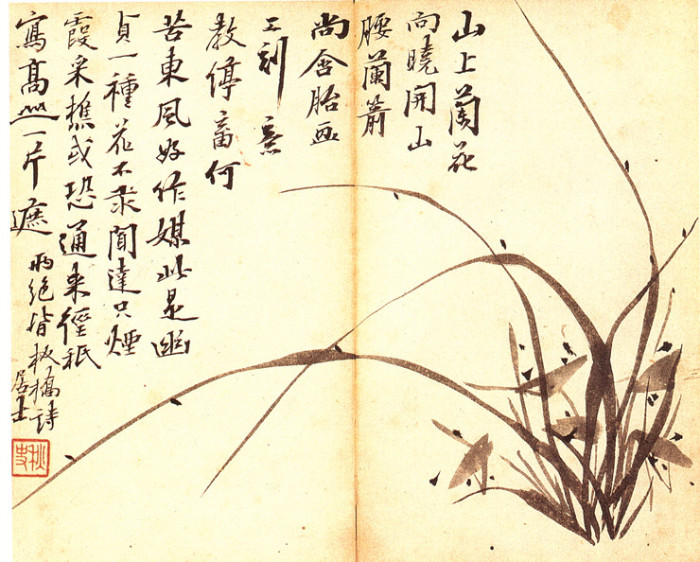 山上蘭花
向曉開山
腰蘭箭
尚含胎画
工刻意
教停畜何
苦東風好作媒此是幽
貞一種花不求聞達只煙
霞采樵或恐通来徑祇
寫高山一片遮
兩絕皆板橋詩
居士